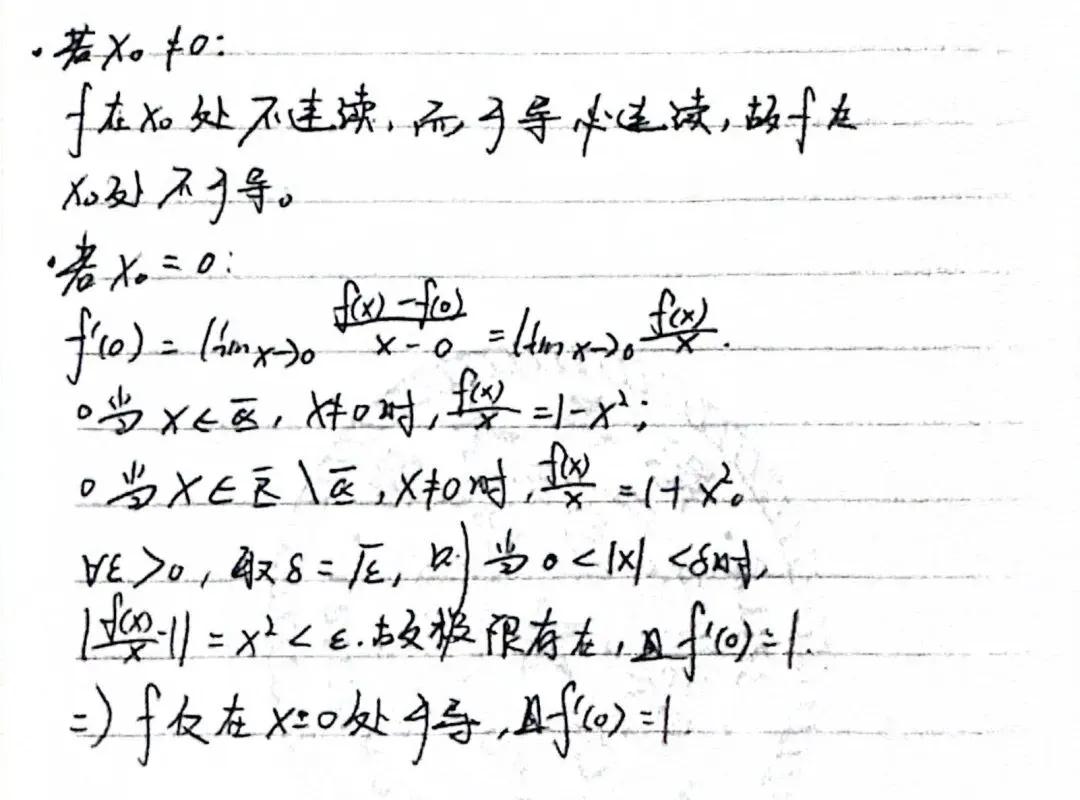 ·若x₀≠0:
f在x₀处不连续,而可导必连续,故f在
x₀处不可导。
·若x₀=0:
f'(0)=lim x→0 (f(x)-f(0))/(x-0)=lim x→0 f(x)/x.
○当x∈Q,x≠0时,f(x)/x=1-x²;
○当x∈R\Q,x≠0时,f(x)/x=1+x²。
∀ε>0,取δ=√ε,则当0<|x|<δ时,
|f(x)/x-1|=x²<ε.故极限存在,且f'(0)=1.
=)f仅在x=0处可导,且f'(0)=1.